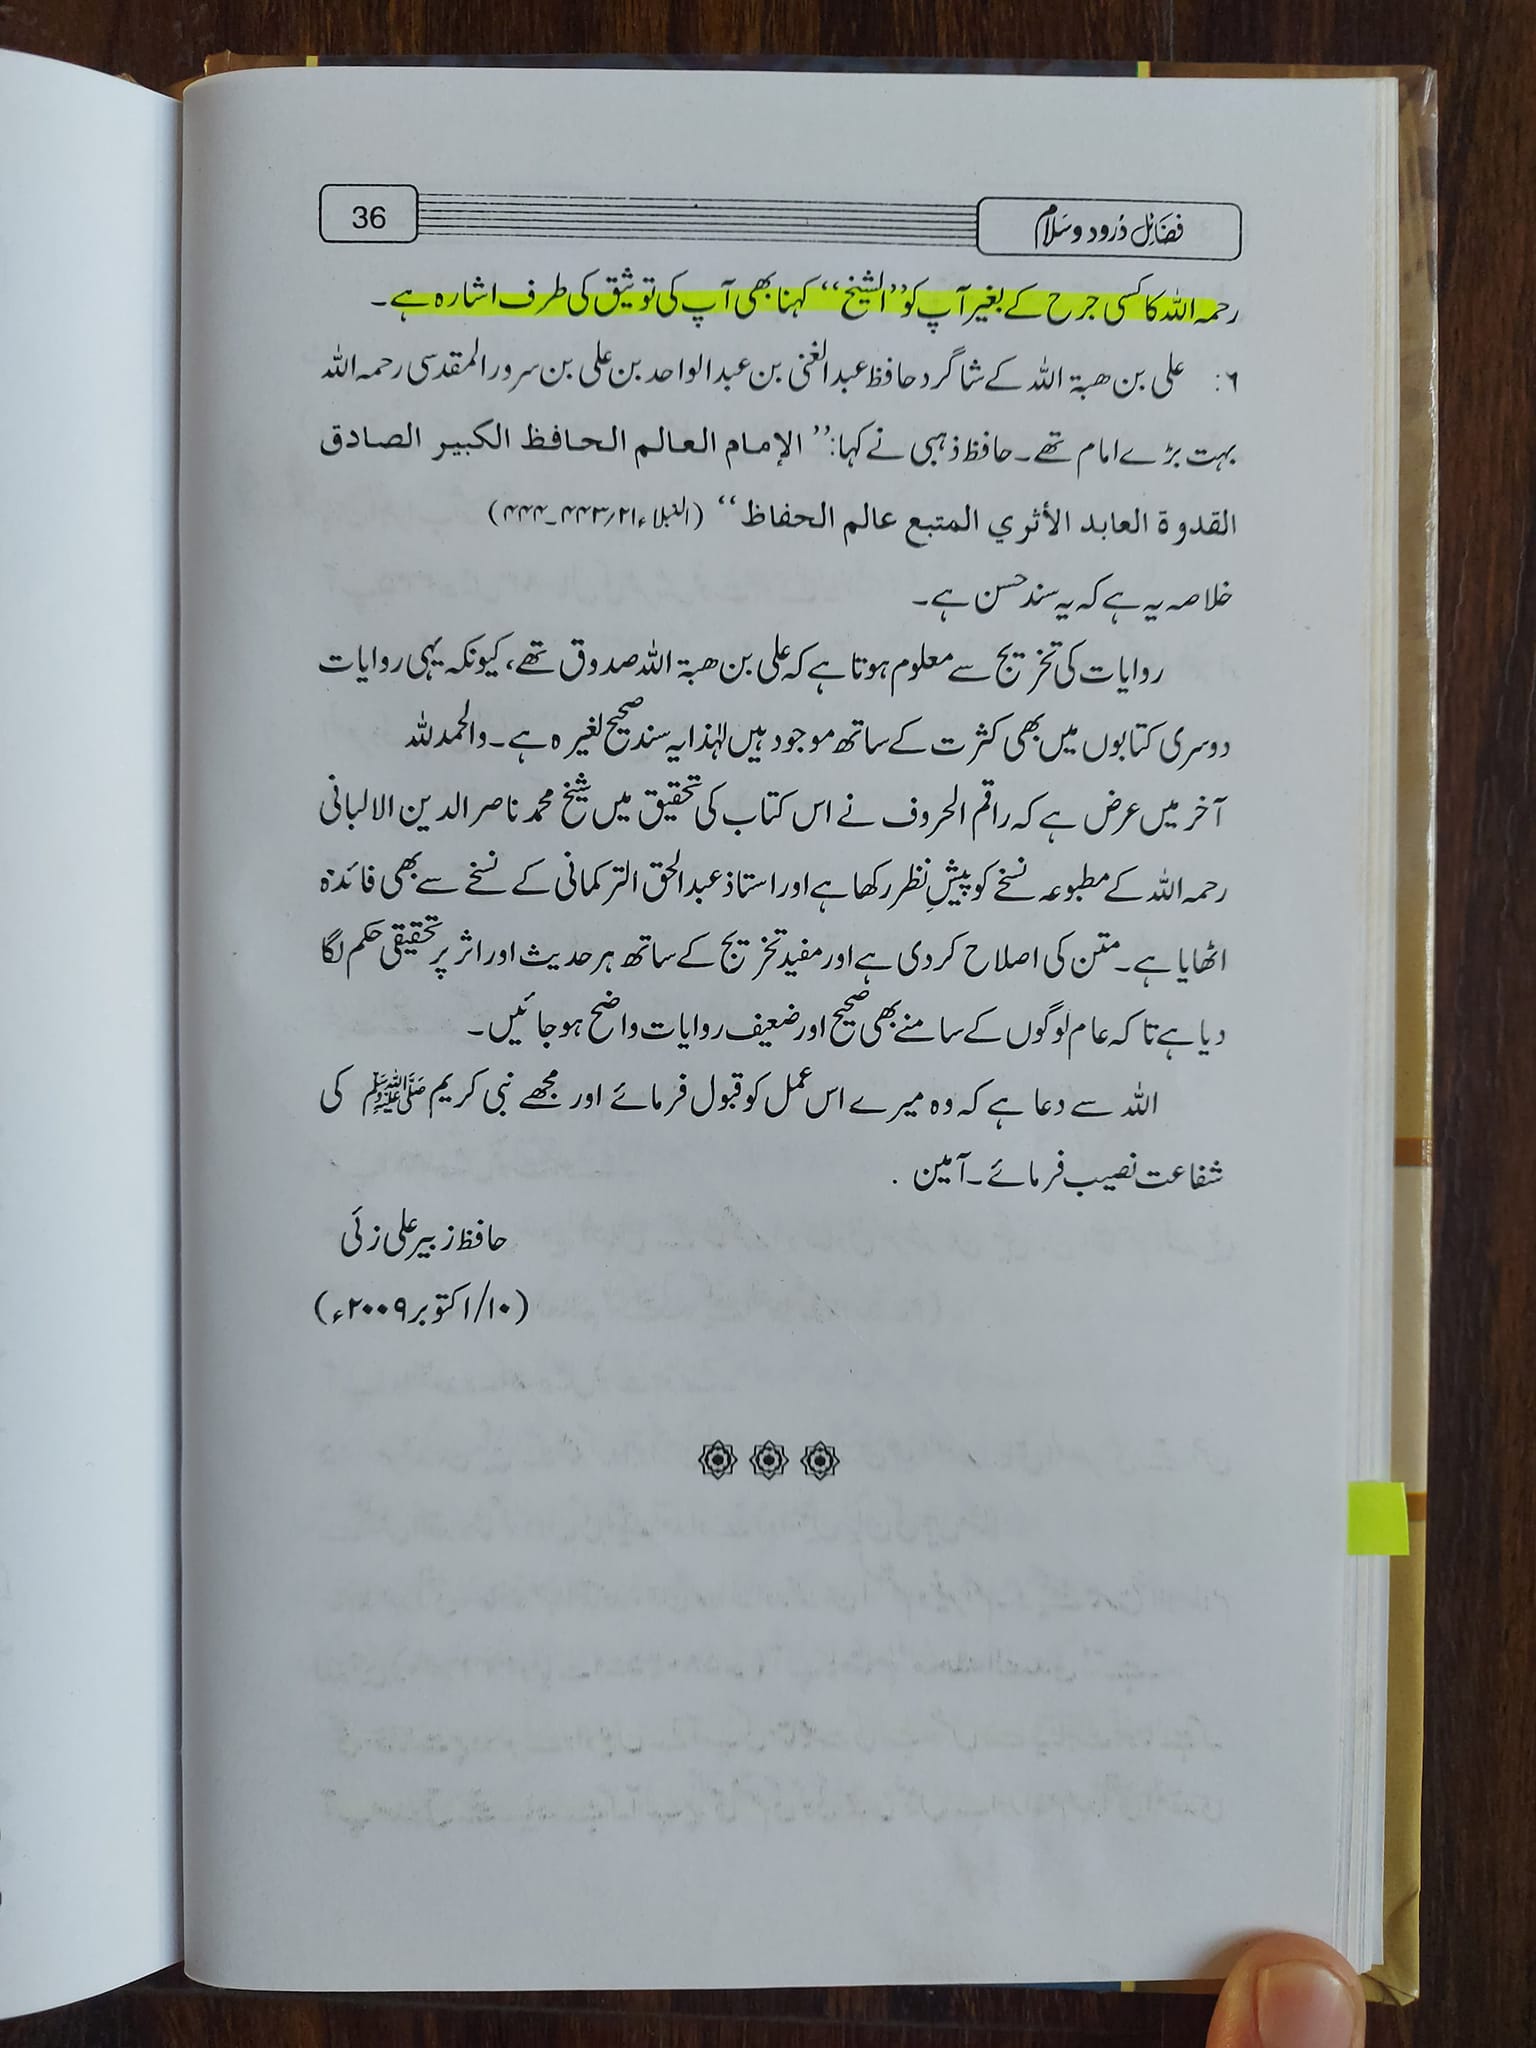 فضائل درود وسلام
36
رحمہ اللہ کا کسی جرح کے بغیر آپ کو ’’الشیخ‘‘ کہنا بھی آپ کی توثیق کی طرف اشارہ ہے۔
۶: علی بن ھبۃ اللہ کے شاگرد حافظ عبدالغنی بن عبدالواحد بن علی بن سرور المقدسی رحمہ اللہ
بہت بڑے امام تھے۔ حافظ ذہبی نے کہا: ’’الإمام العالم الحافظ الکبیر الصادق
القدوة العابد الأثري المتبع عالم الحفاظ‘‘ (النبلاء ۲۱/۴۴۳۔۴۴۴)
خلاصہ یہ ہے کہ یہ سند حسن ہے۔
روایات کی تخریج سے معلوم ہوتا ہے کہ علی بن ھبۃ اللہ صدوق تھے، کیونکہ یہی روایات
دوسری کتابوں میں بھی کثرت کے ساتھ موجود ہیں لہٰذا یہ سند صحیح لغیرہ ہے۔ والحمدللہ
آخر میں عرض ہے کہ راقم الحروف نے اس کتاب کی تحقیق میں شیخ محمد ناصر الدین الالبانی
رحمہ اللہ کے مطبوعہ نسخے کو پیشِ نظر رکھا ہے اور استاذ عبدالحق الترکمانی کے نسخے سے بھی فائدہ
اٹھایا ہے۔ متن کی اصلاح کر دی ہے اور مفید تخریج کے ساتھ ہر حدیث اور اثر پر تحقیقی حکم لگا
دیا ہے تاکہ عام لوگوں کے سامنے بھی صحیح اور ضعیف روایات واضح ہو جائیں۔
اللہ سے دعا ہے کہ وہ میرے اس عمل کو قبول فرمائے اور مجھے نبی کریم ﷺ کی
شفاعت نصیب فرمائے۔ آمین .
حافظ زبیر علی زئی
(۱۰/اکتوبر ۲۰۰۹ء)